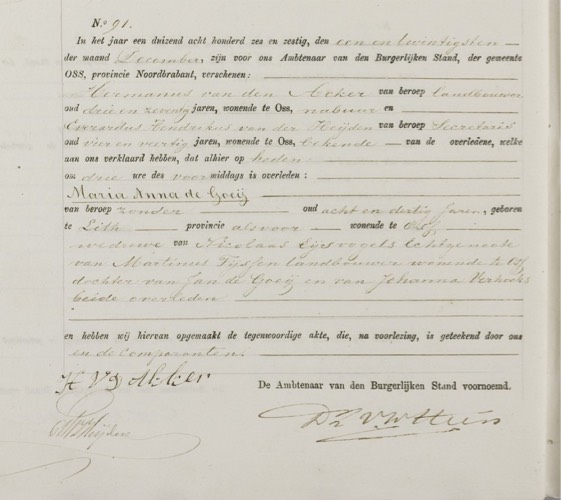 No 91.
In het jaar een duizend acht honderd zes en zestig, den een en twintigsten
der maand December, zijn voor ons Ambtenaar van den Burgerlijken Stand, der gemeente
OSS, provincie Noordbrabant, verschenen:
Hermanus van den Acker van beroep landbouwer
oud drie en zeventig jaren, wonende te Oss, nabuur en
Everardus Hendrikus van der Heijden van beroep Secretaris
oud vier en veertig jaren, wonende te Oss, bekende van de overledene, welke
aan ons verklaard hebben, dat alhier op heden
om drie ure des voormiddags is overleden:
Maria Anna de Goeij
van beroep zonder oud acht en dertig jaren, geboren
te Lith provincie alsvoor wonende te Oss
weduwe van Nicolaas Eijsvogels Echtgenoote
van Martinus Tijssen landbouwer wonende te
dochter van Jan de Goeij en van Johanna
beide overleden
en hebben wij hiervan opgemaakt de tegenwoordige akte, die, na voorlezing, is geteekend door ons
en de comparanten.
H V D Akker De Ambtenaar van den Burgerlijken Stand voornoemd.
Heijden